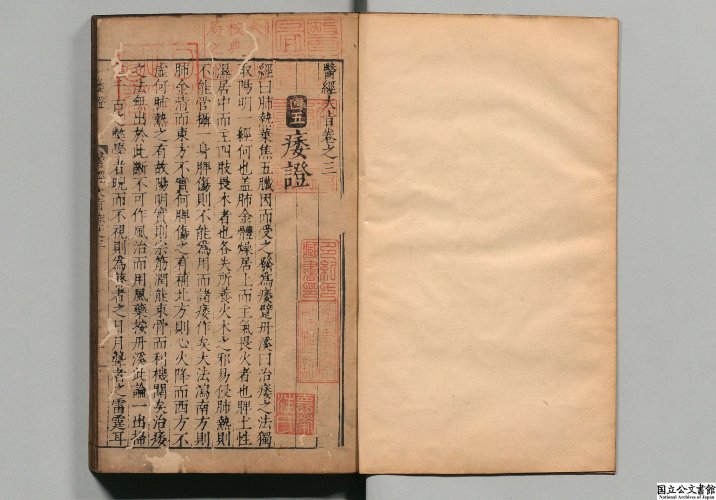 醫經大旨卷之三
痿證
經曰肺熱葉焦五臟因而受之發為痿躄丹溪曰治痿之法獨
取陽明一經何也蓋肺金體燥居上而主氣畏火者也脾土性
濕居中而主四肢畏木者也各失所養火木之邪易侵肺熱則
不能管攝一身脾傷則不能為用而諸痿作矣大法瀉南方則
肺金清而東方不實何脾傷之有補北方則心火降而西方不
虛何肺熱之有故陽明實則宗筋潤能束骨而利機關矣治痿
之法無出於此斷不可作風治而用風藥按丹溪此論一出掃
百之弊學者視而不視則為瞽者之日月聾者之雷霆耳
国立公文書館
National Archives of Japan